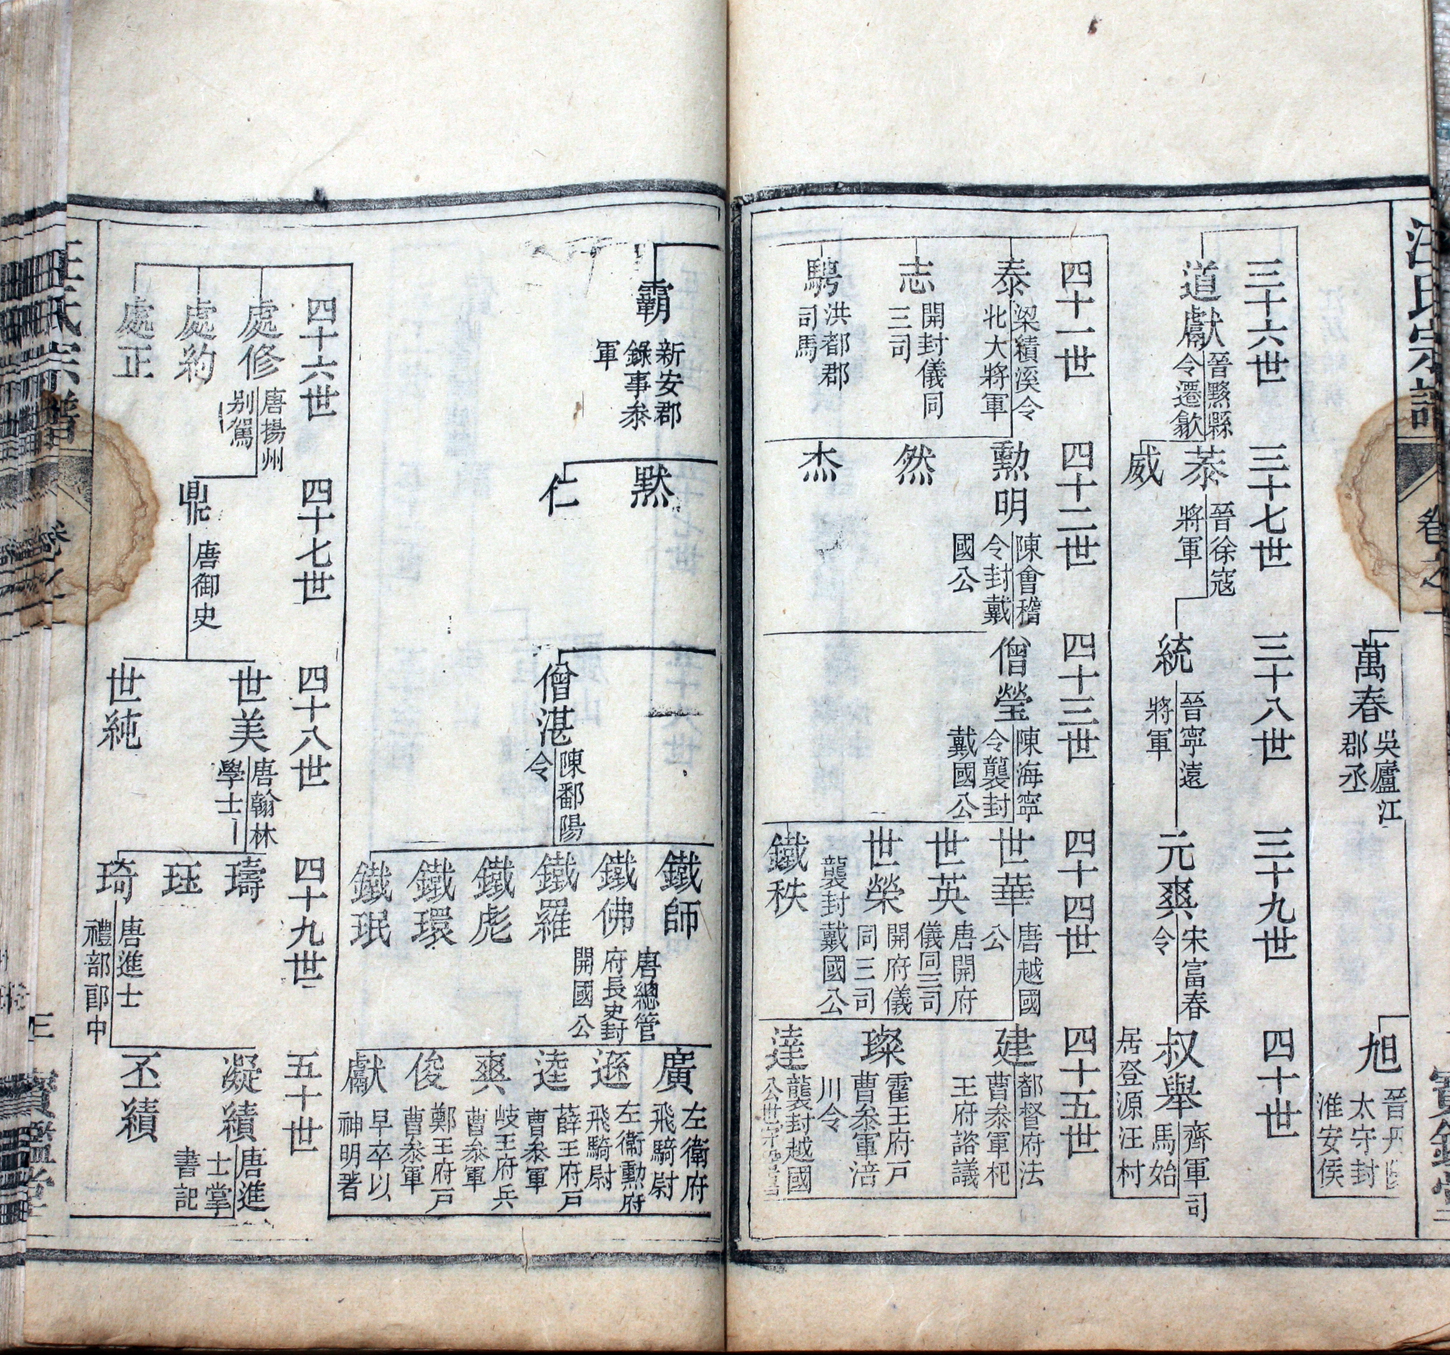 汪氏宗譜
卷之一
寶鑑堂
萬春
吳廬江
郡丞
旭
太守封
淮安侯
三十六世
道獻
晉黟縣
令遷歙
三十七世
菾
晉徐寇
將軍
威
三十八世
統
晉寧遠
將軍
三十九世
元爽
宋富春
令
四十世
叔舉
齊軍司
馬始
居登源汪村
四十一世
泰
梁績溪令
北大將軍
志
開封儀同
三司
騁
洪都郡
司馬
四十二世
勳明
陳會稽
令封戴
國公
然
杰
四十三世
僧瑩
陳海寧
令襲封
戴國公
四十四世
世華
唐越國
公
世英
唐開府
儀同三司
世榮
開府儀
同三司
襲封戴國公
鐵秩
四十五世
建
都督府法
曹叅軍杞
王府諮議
璨
霍王府戸
曹叅軍涪
川令
達
襲封越國
霸
新安郡
錄事叅
軍
默
仁
僧湛
陳鄱陽
令
鐵師
鐵佛
唐總管
府長史封
開國公
鐵羅
鐵彪
鐵環
鐵珉
廣
左衛府
飛騎尉
遜
左衛勲府
飛騎尉
逵
薛王府戸
曹叅軍
爽
岐王府兵
曹叅軍
俊
鄭王府戸
曹叅軍
獻
早卒以
神明著
四十六世
處修
唐揚州
别駕
處約
處正
四十七世
鼎
唐御史
四十八世
世美
唐翰林
學士
世純
四十九世
璹
珏
琦
唐進士
禮部郎中
五十世
凝績
唐進
士掌
書記
丕績
汪氏宗譜
卷之一
三
寶鑑堂